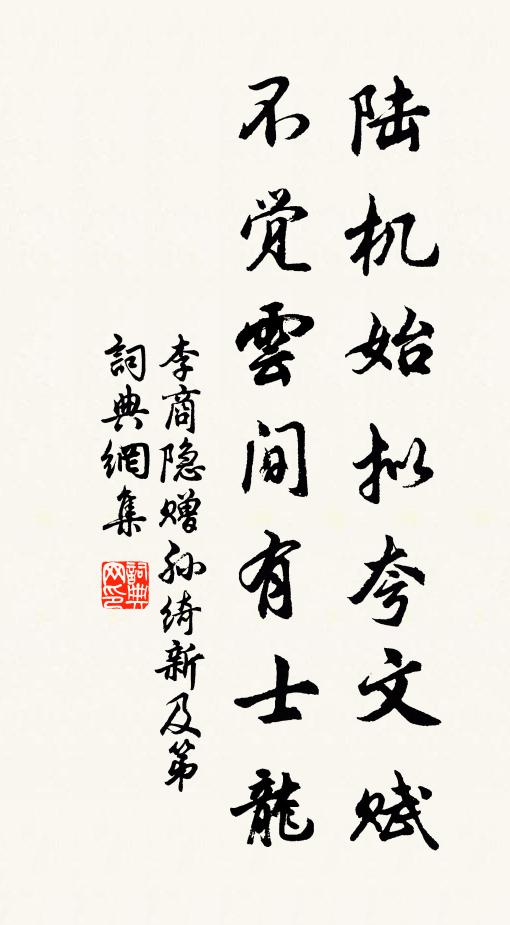 陆机始拟夸文赋
不觉雲间有士龍
李商隐赠孙绮新及第
詞典網集
詞典网印